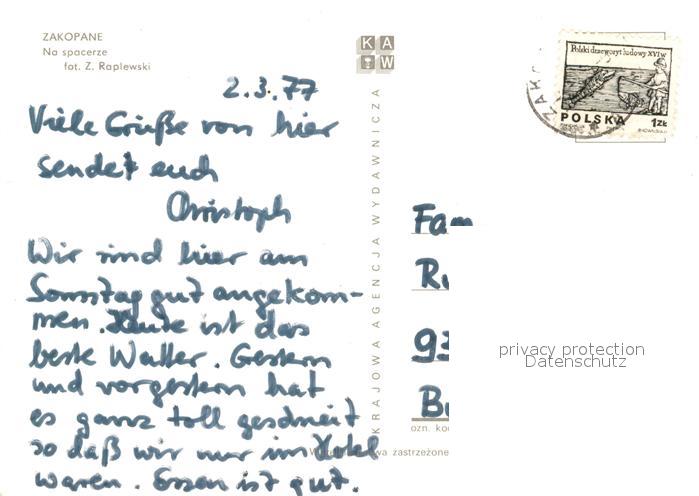 ZAKOPANE
Na spacerze
fot. Z. Raplewski
KAW
2.3.77
Viele Grüße von hier
sendet euch
Christoph
Wir sind hier am
Sonntag gut angekom-
men. Heute ist das
beste Wetter. Gestern
und vorgestern hat
es ganz toll geschneit
so daß wir nur im Hotel
waren. Essen ist gut.
KRAJOWA AGENCJA WYDAWNICZA
Polski drzeworyt ludowy XVI w.
POLSKA
1 ZŁ
ZAKO
Fam
93
privacy protection
Datenschutz
zastrzeżone